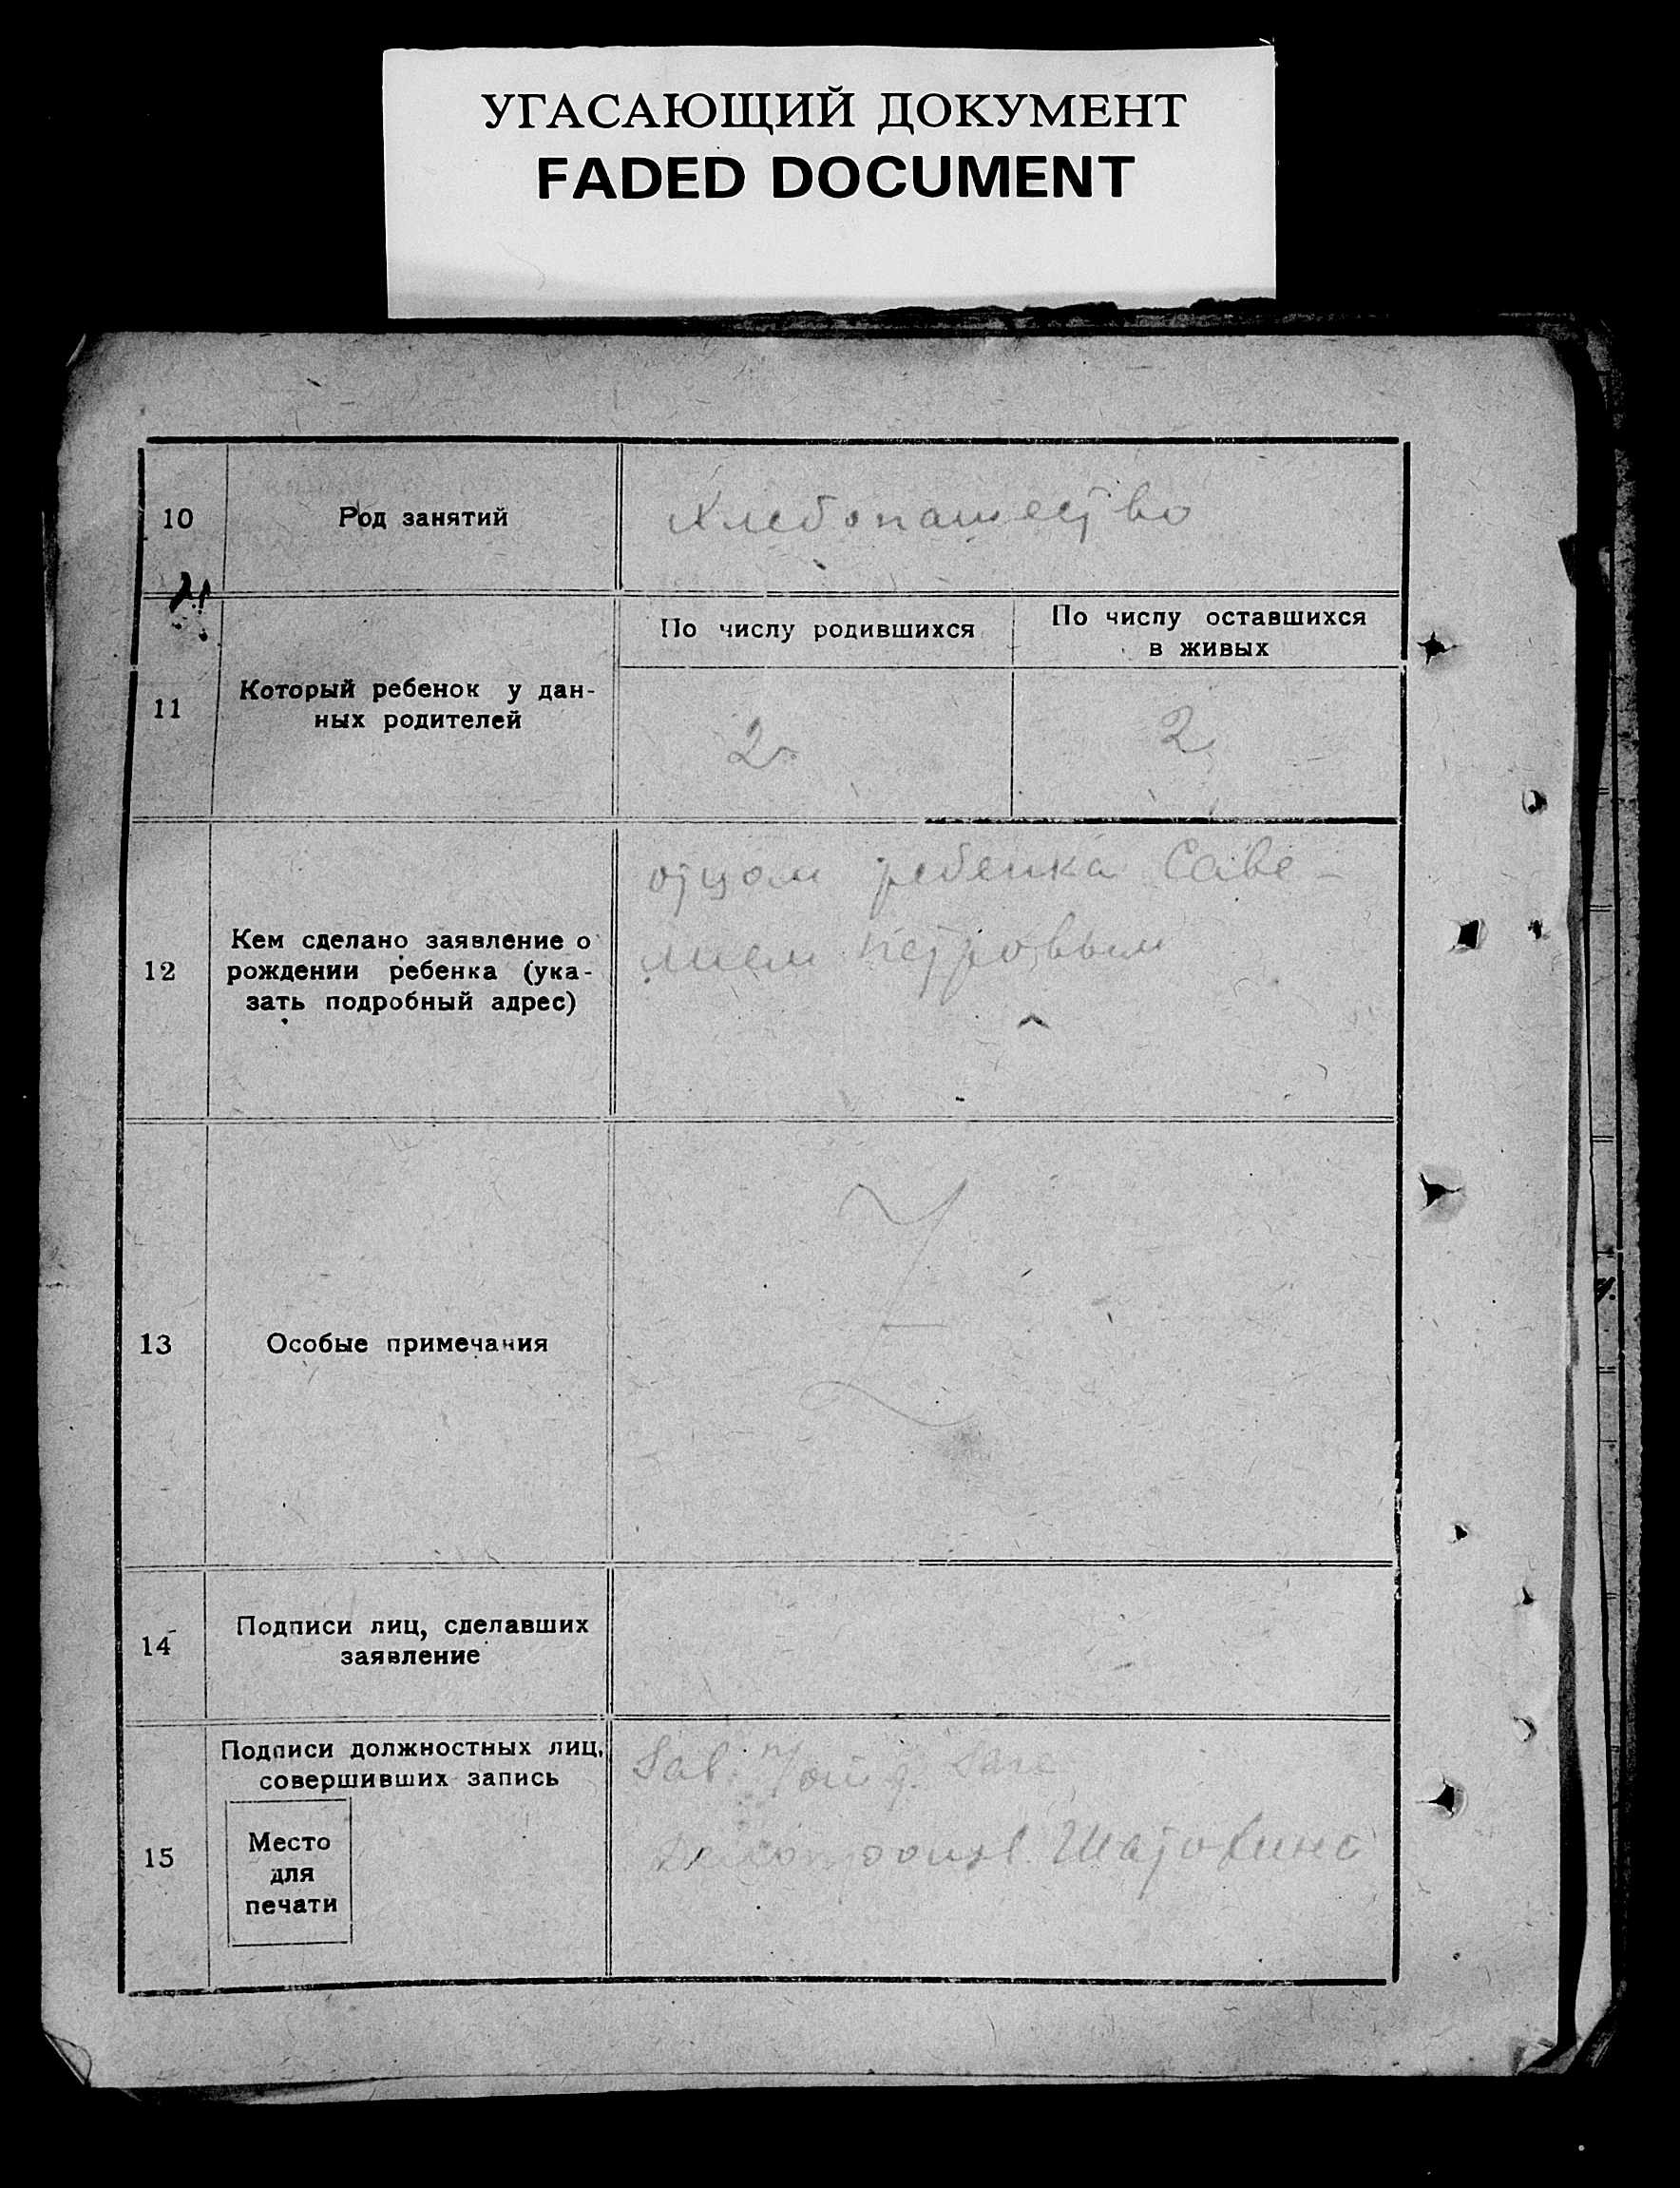 УГАСАЮЩИЙ ДОКУМЕНТ
FADED DOCUMENT
10
Род занятий
Хлебопашество
11
Который ребенок у дан-
ных родителей
По числу родившихся
По числу оставшихся
в живых
2
2
12
Кем сделано заявление о
рождении ребенка (ука-
зать подробный адрес)
отцом ребенка Саве-
лием Петровым
13
Особые примечания
14
Подписи лиц, сделавших
заявление
15
Подписи должностных лиц,
совершивших запись
Место
для
печати
Зав.